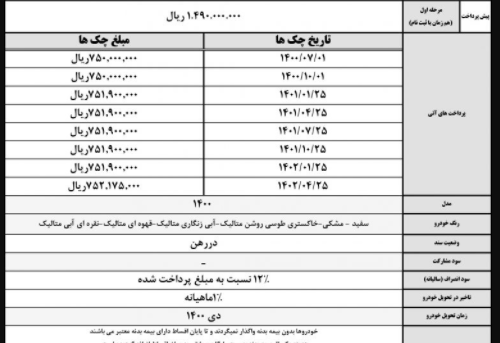 پیش پرداخت
مرحله اول
(هم زمان با ثبت نام)
۱.۴۹۰.۰۰۰.۰۰۰ ریال
پرداخت های آتی
تاریخ چک ها مبلغ چک ها
۱۴۰۰/۰۷/۰۱ ۷۵۰,۰۰۰,۰۰۰ریال
۱۴۰۰/۱۰/۰۱ ۷۵۰,۰۰۰,۰۰۰ریال
۱۴۰۱/۰۱/۲۵ ۷۵۱,۹۰۰,۰۰۰ریال
۱۴۰۱/۰۴/۲۵ ۷۵۱,۹۰۰,۰۰۰ریال
۱۴۰۱/۰۷/۲۵ ۷۵۱,۹۰۰,۰۰۰ریال
۱۴۰۱/۱۰/۲۵ ۷۵۱,۹۰۰,۰۰۰ریال
۱۴۰۲/۰۱/۲۵ ۷۵۱,۹۰۰,۰۰۰ریال
۱۴۰۲/۰۴/۲۵ ۷۵۲,۱۷۵,۰۰۰ریال
مدل ۱۴۰۰
رنگ خودرو سفید - مشکی-خاکستری طوسی روشن متالیک-آبی زنگاری متالیک-قهوه ای متالیک-نقره ای آبی متالیک
وضعیت سند دررهن
سود مشارکت -
سود انصراف (سالیانه) ۱۲٪ نسبت به مبلغ پرداخت شده
تاخیر در تحویل خودرو ۱٪ماهیانه
زمان تحویل خودرو دی ۱۴۰۰
خودروها بدون بیمه بدنه واگذار نمیگردند و تا پایان اقساط دارای بیمه بدنه معتبر می باشند